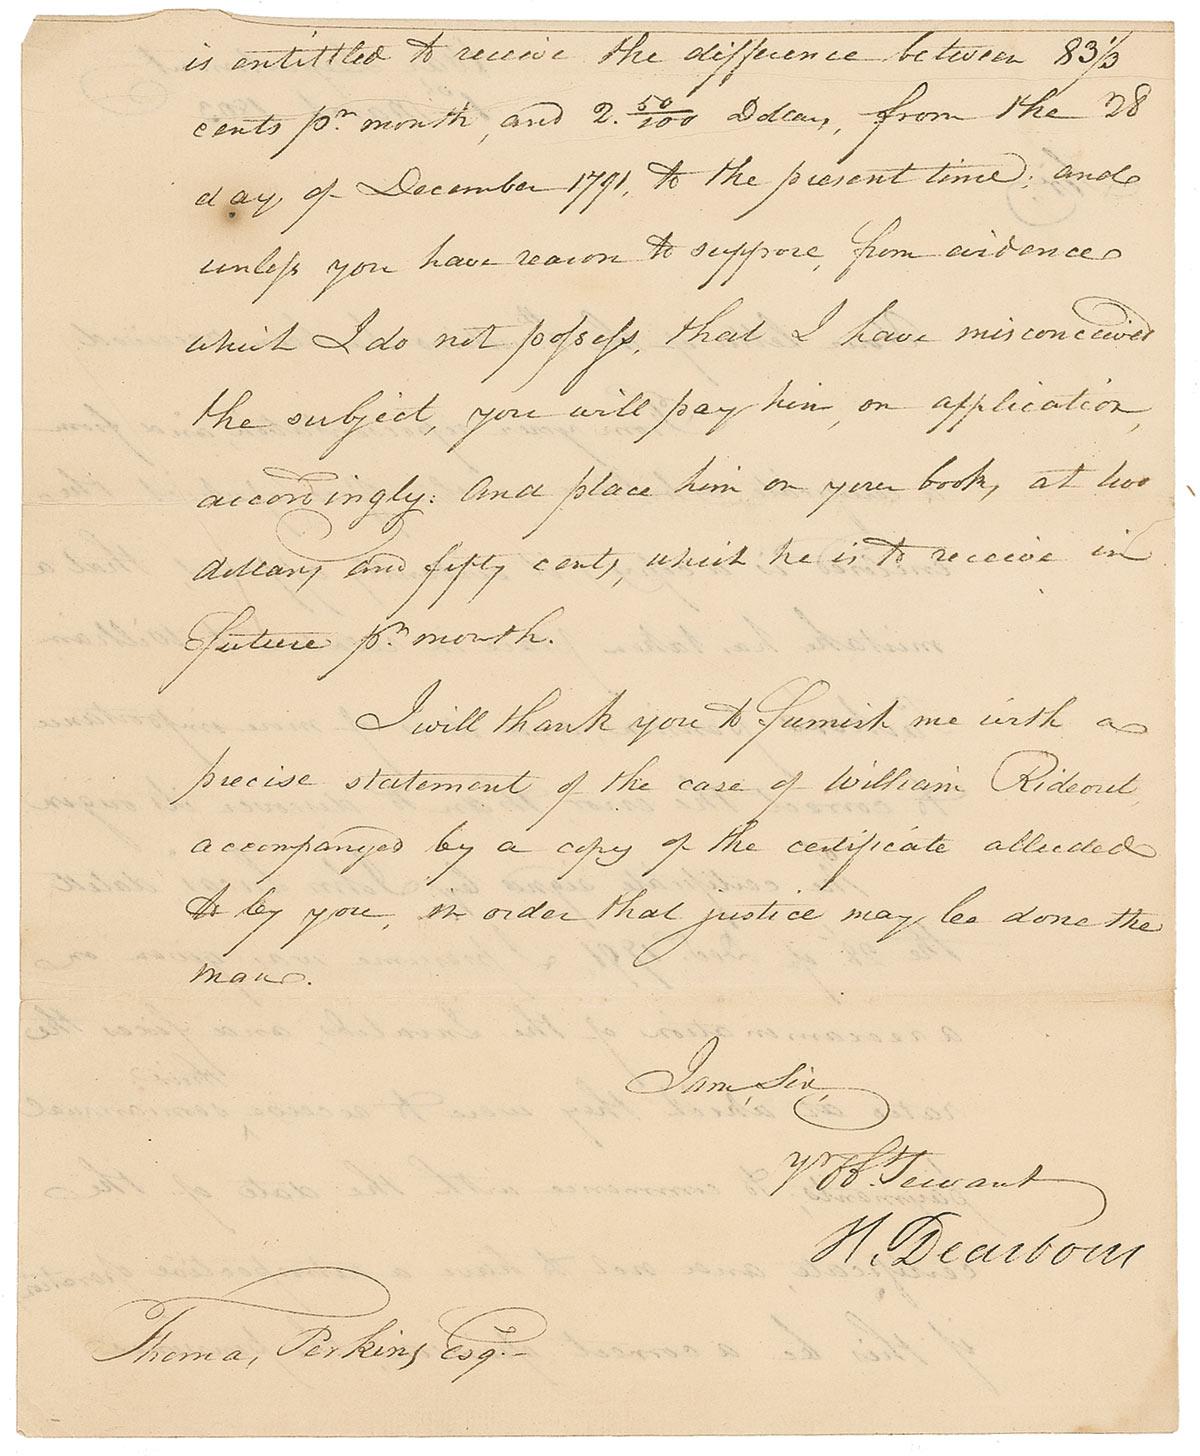 is entittled to receive the difference between 83 1/3
cents pr. month, and 2. 50/100 Dollars, from the 28
day of December 1791, to the present time; and
unless you have reason to suppose, from evidence
which I do not possess, that I have misconceived
the subject, you will pay him, on application,
accordingly: And place him on your books, at two
dollars and fifty cents, which he is to receive in
future pr. month.
I will thank you to furnish me with a
precise statement of the case of William Rideout,
accompanyed by a copy of the certificate alluded
to by you, in order that justice may be done the
man.
I am, Sir,
yr. Obt. Servant
H. Dearborn
Thomas Perkins Esqr.